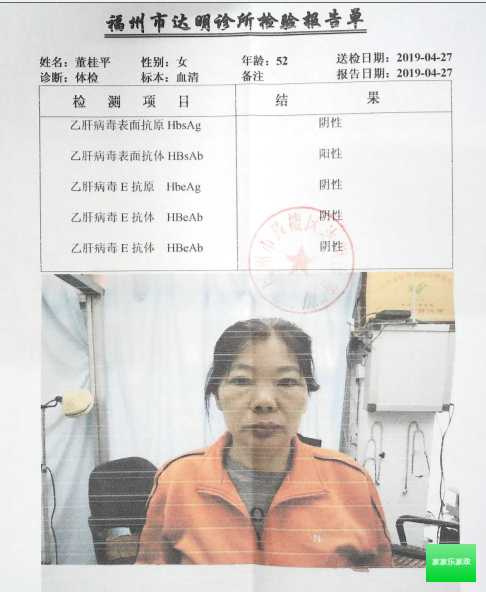 福州市达明诊所检验报告单
姓名：董桂平 性别：女 年龄：52 送检日期：2019-04-27
诊断：体检 标本：血清 备注 报告日期：2019-04-27
检测项目 结果
乙肝病毒表面抗原 HbsAg 阴性
乙肝病毒表面抗体 HBsAb 阳性
乙肝病毒 E 抗原 HbeAg 阴性
乙肝病毒 E 抗体 HBeAb 阴性
乙肝病毒 E 抗体 HBeAb 阴性
家家乐家政